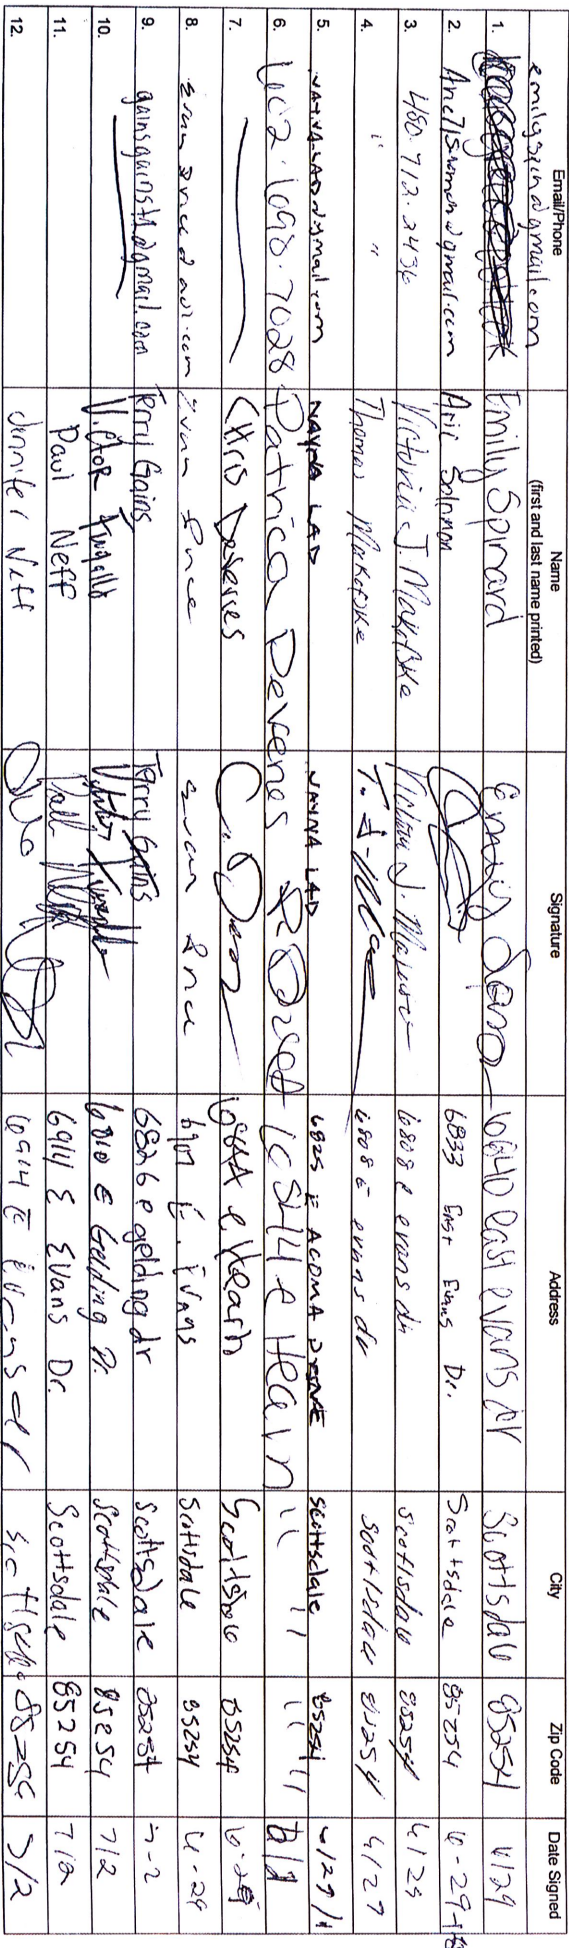 Email/Phone Name (first and last name printed) Signature Address City Zip Code Date Signed
1. emilyspin@gmail.com Emily Spinard Emily 6840 east evans dr Scottsdale 85254 6/29
2. Aric Solomon 6833 East Evans Dr. Scottsdale 85254 6-29-18
3. 480.712.2436 Victoria J. Makofske Victoria J. 6808 e evans dr Scottsdale 85254 6/29
4. " " Thomas Makofske 6808 E evans dr Scottsdale 85254 6/29
5. NAYNA.LAD@gmail.com NAYNA LAD NAYNA LAD 6825 E ACOMA DRIVE Scottsdale 85254 6/29/1
6. 602.1098.7028 Patricia 6844 e Hearn " " " "
7. Chris 6844 e Hearn Scottsdale 85254
8. 6907 E. Evans Scottsdale 85254 6-29
9. gainsgainst1@gmail.com Terry Gains Terry Gains 6826 e gelding dr Scottsdale 85254 7-2
10. Victor Victor 6810 E Gelding Dr. Scottsdale 85254 7/2
11. Paul Neff Paul Neff 6914 E Evans Dr. Scottsdale 85254 7/2
12. Jennifer Neff 6914 E Evans dr Scottsdale 7/2